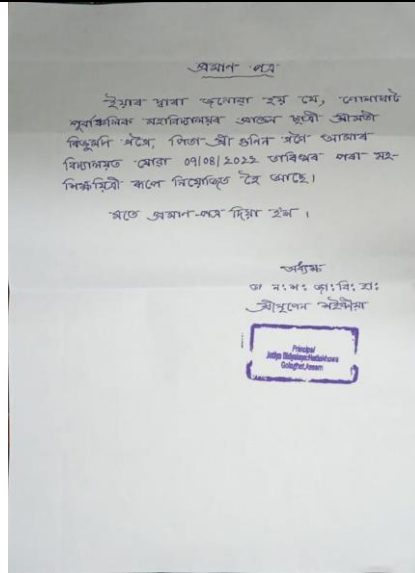 প্ৰমাণ পত্ৰ
ইয়াৰ দ্বাৰা জনোৱা হয় যে, গোলাঘাট
পূৰ্বাঞ্চলিক মহাবিদ্যালয়ৰ প্ৰাক্তন ছাত্ৰী শ্ৰীমতী
গগৈ, পিতা শ্ৰী গগৈ আমাৰ
বিদ্যালয়ত যোৱা 09/08/2022 তাৰিখৰ পৰা সহ-
শিক্ষয়িত্ৰী ৰূপে নিয়োজিত হৈ আছে।
মতে প্ৰমাণ-পত্ৰ দিয়া হ'ল।
অধ্যক্ষ
জা: বি: হা:
শ্ৰী শইকীয়া
Principal
Jatiya Bidyalaya, Hatiekhowa
Golaghat, Assam